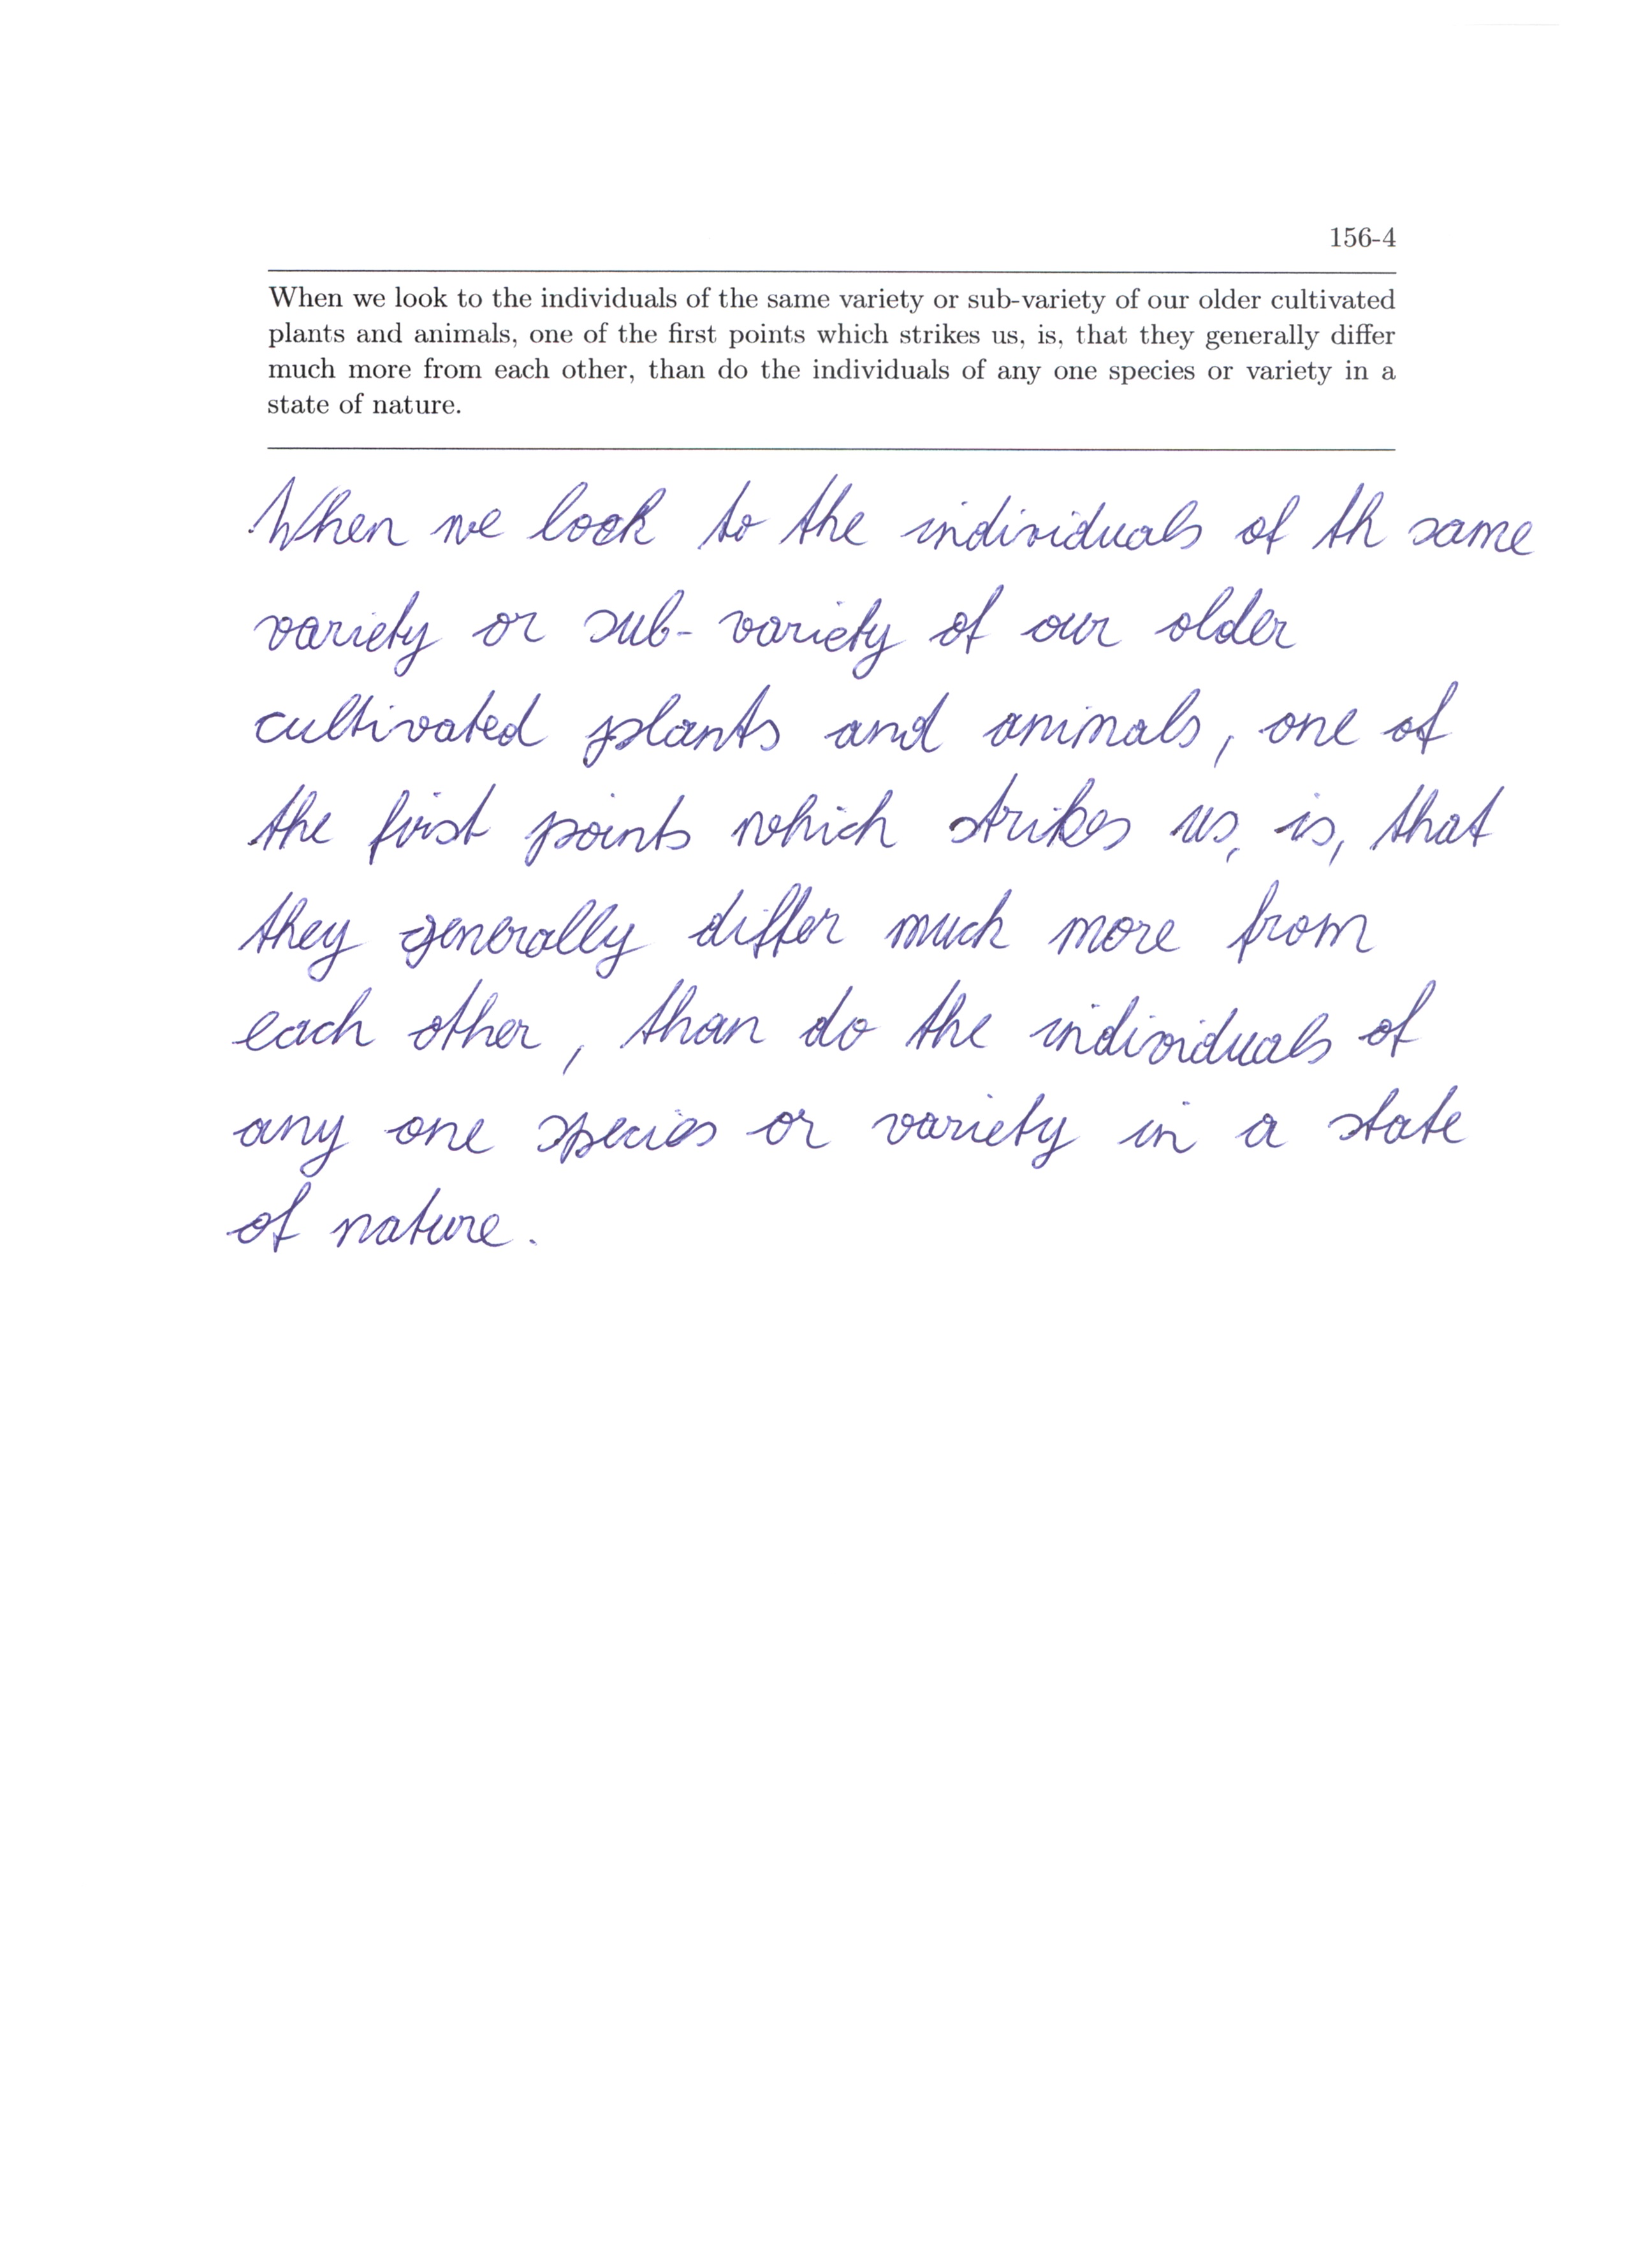 156-4
When we look to the individuals of the same variety or sub-variety of our older cultivated
plants and animals, one of the first points which strikes us, is, that they generally differ
much more from each other, than do the individuals of any one species or variety in a
state of nature.
When we look to the individuals of th same
variety or sub-variety of our older
cultivated plants and animals, one of
the first points which strikes us, is, that
they generally differ much more from
each other, than do the individuals of
any one species or variety in a state
of nature.